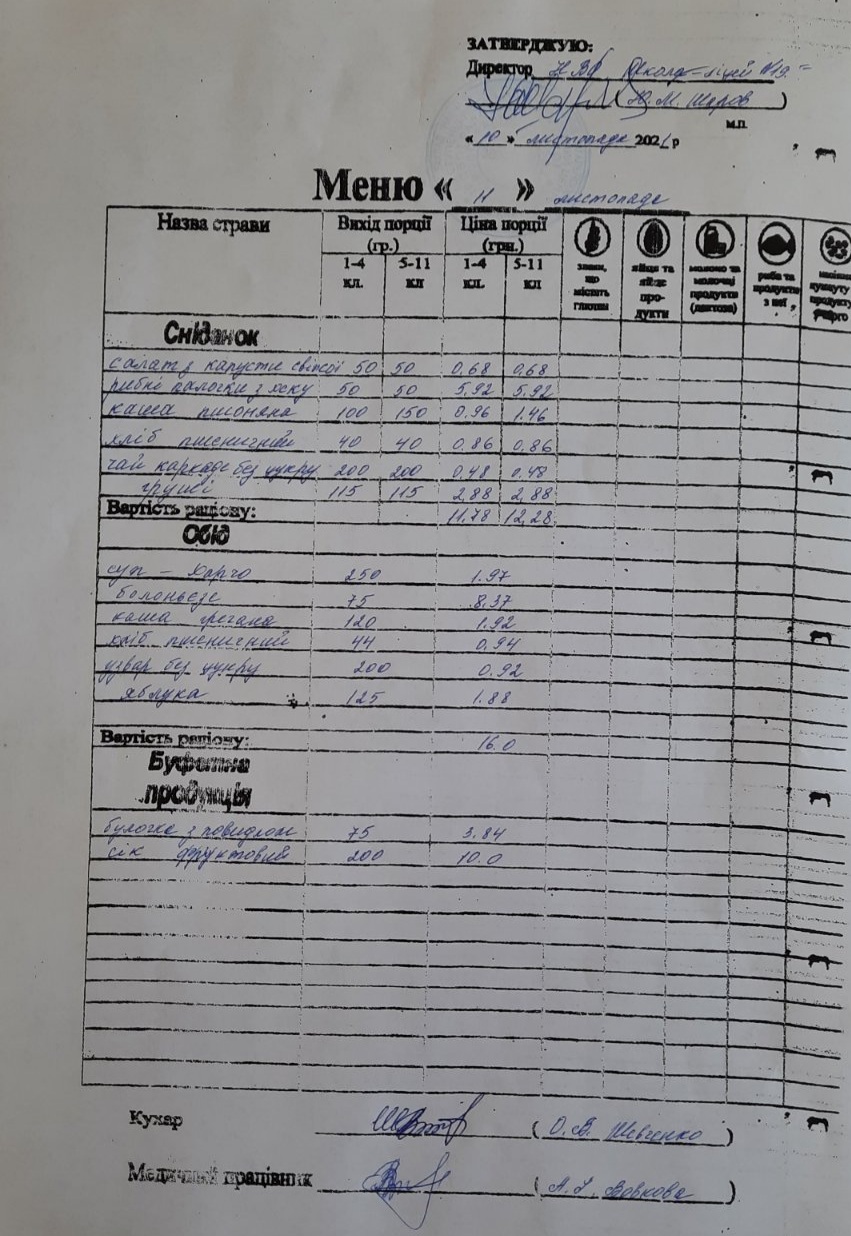 ЗАТВЕРДЖУЮ:
Директор НВК Школа-ліцей №19
( Ю.М. )
М.П.
« 10 » листопада 2021 р
Меню « 11 » листопада
Назва страви Вихід порції (гр.) Ціна порції (грн.)
1-4 кл. 5-11 кл 1-4 кл. 5-11 кл
злаки, що містять глютен
яйця та яйце про- дукти
молоко та молочні продукти (лактоза)
риба та продукти з неї
Сніданок
салат з капусти свіжої 50 50 0,68 0,68
рибні палочки з хеку 50 50 5.92 5.92
каша пшоняна 100 150 0.96 1.46
хліб пшеничний 40 40 0.86 0,86
чай каркаде без цукру 200 200 0,48 0.48
груші 115 115 2,88 2,88
Вартість раціону: 11,78 12,28
Обід
суп - харчо 250 1.97
болоньєзе 75 8.37
каша гречана 120 1.92
хліб пшеничний 44 0.94
узвар без цукру 200 0.92
яблука 125 1.88
Вартість раціону: 16.0
Буфетна
продукція
булочка з повидлом 75 3.84
сік фруктовий 200 10.0
Кухар ( О.В. Шевченко )
Медичний працівник ( Вовкова )